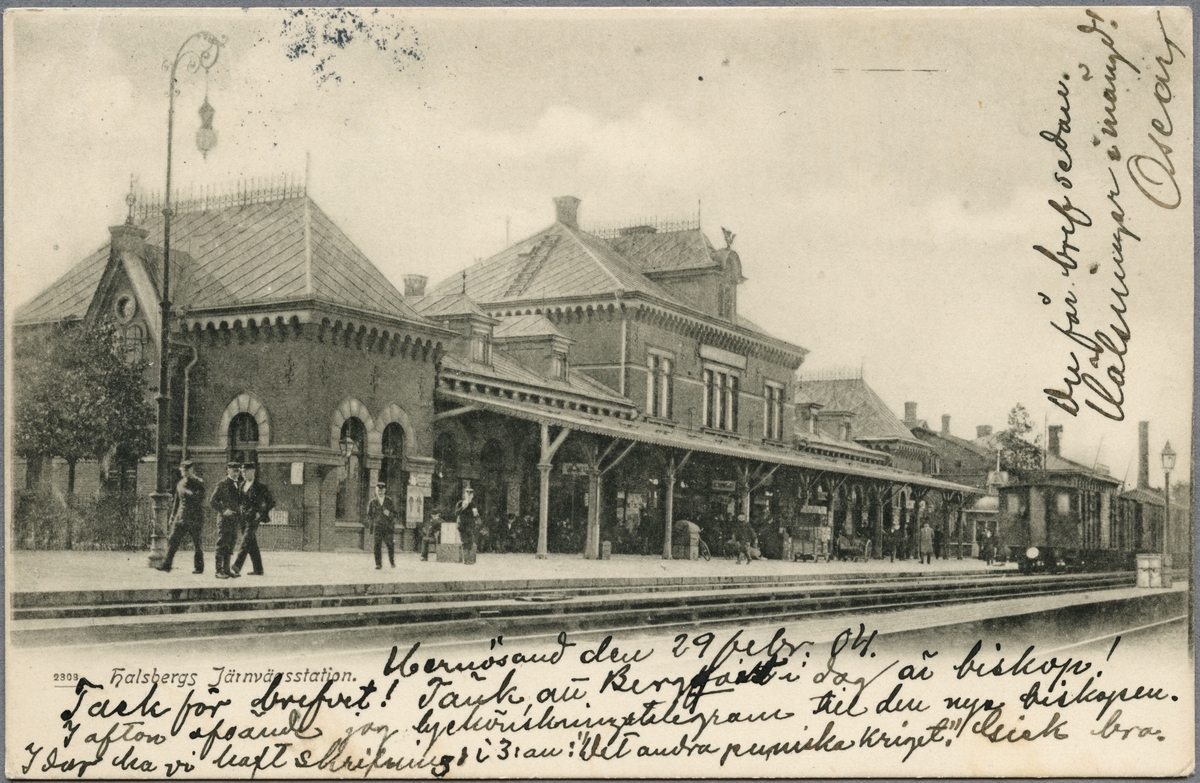 2303 Halsbergs Järnvägsstation.
Hernösand den 29 febr. 04.
Tack för brefvet! Tänk att Bergqvist i dag är biskop!
I afton afsände jag lyckönskningstelegram till den nye biskopen.
I dag ha vi haft skrifning i 3:an: "Det andra puniska kriget." Gick bra.
Du får bref sedan.
Hälsningar i mängd.
Oscar